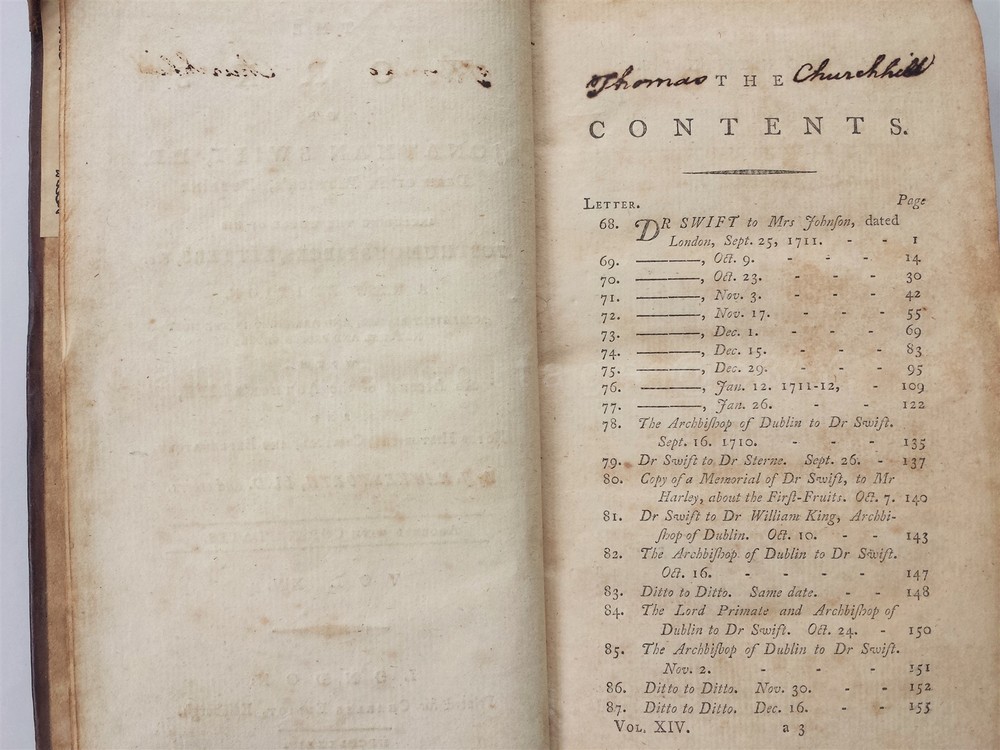 Thomas THE Churchhill
CONTENTS.
LETTER. Page
68. DR SWIFT to Mrs Johnſon, dated
London, Sept. 25, 1711. - - 1
69. ————, Oct. 9. - - - 14
70. ————, Oct. 23. - - - 30
71. ————, Nov. 3. - - - 42
72. ————, Nov. 17. - - - 55
73. ————, Dec. 1. - - - 69
74. ————, Dec. 15. - - - 83
75. ————, Dec. 29. - - - 95
76. ————, Jan. 12. 1711-12, - 109
77. ————, Jan. 26. - - 122
78. The Archbiſhop of Dublin to Dr Swift.
Sept. 16. 1710. - - - 135
79. Dr Swift to Dr Sterne. Sept. 26. - 137
80. Copy of a Memorial of Dr Swift, to Mr
Harley, about the Firſt-Fruits. Oct. 7. 140
81. Dr Swift to Dr William King, Archbi-
ſhop of Dublin. Oct. 10. - - 143
82. The Archbiſhop of Dublin to Dr Swift.
Oct. 16. - - - - 147
83. Ditto to Ditto. Same date. - - 148
84. The Lord Primate and Archbiſhop of
Dublin to Dr Swift. Oct. 24. - 150
85. The Archbiſhop of Dublin to Dr Swift.
Nov. 2. - - - - 151
86. Ditto to Ditto. Nov. 30. - - 152
87. Ditto to Ditto. Dec. 16. - - 155
VOL. XIV. a 3